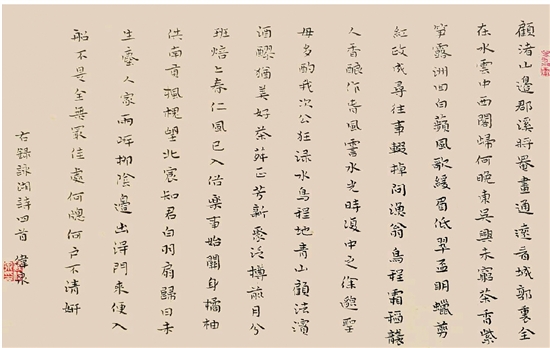 顧渚山邊郡溪將罨畫通遠看城郭裏全
在水雲中西閣歸何晚東吳興未窮茶香紫
筍露洲回白蘋風歌緩眉低翠盃明蠟剪
紅政成尋往事輟棹問漁翁烏程霜稻襲
人香釀作春風霅水光時復中之徐邈聖
毋多酌我次公狂淥水烏程地青山顧渚濱
酒醪猶美好茶荈正芳新聚泛樽前月分
班焙上春仁風已入俗樂事始關身橘柚
供南貢楓槐望北宸知君白羽扇歸日未
生塵人家兩岸柳陰邊出得門來便入
船不是全無最佳處何窗何戶不清妍
右錄詠湖詩四首